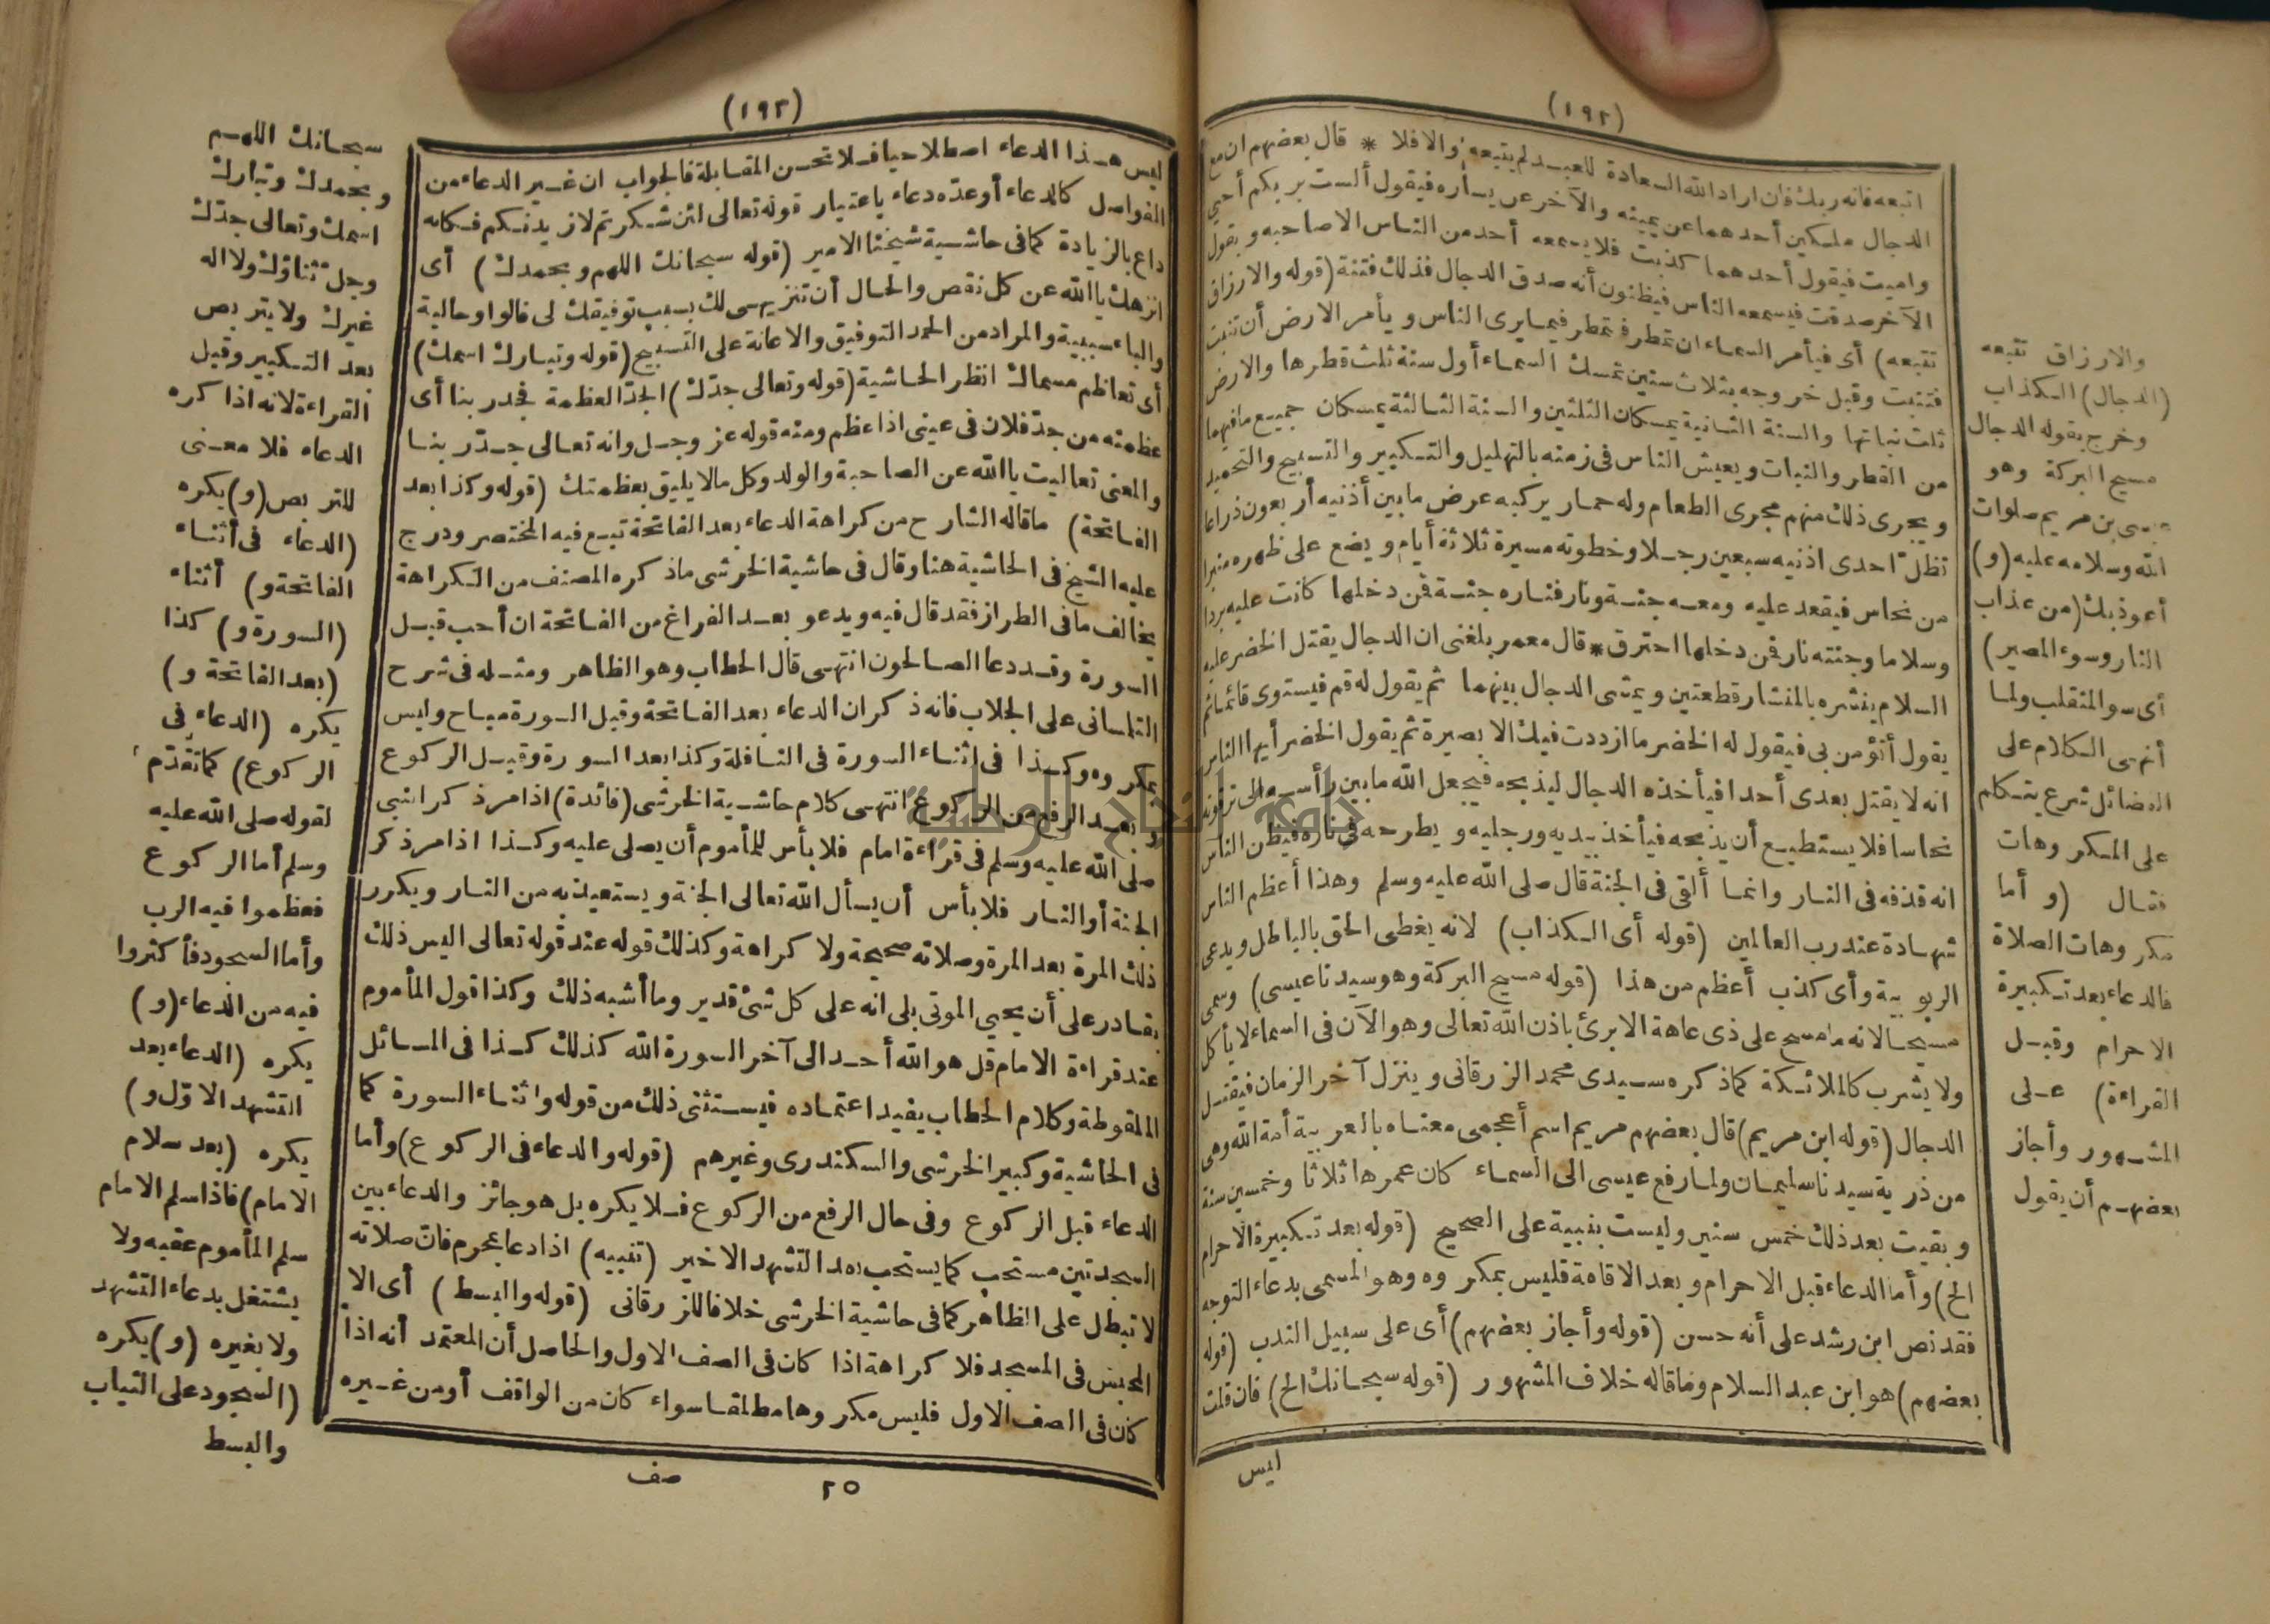 (١٩٢)
اتبعه فانه ربك فان اراد الله السعادة للعبد لم يتبعه والا فلا * قال بعضهم ان مع
الدجال ملكين أحدهما عن يمينه والآخر عن يساره فيقول ألست بربكم أحيي
واميت فيقول أحدهما كذبت فلا يسمعه أحد من الناس الا صاحبه ويقول
الآخر صدقت فيسمعه الناس فيظنون أنه صدق الدجال فذلك فتنة (قوله والارزاق
تتبعه) أى فيأمر السماء ان تمطر فتمطر فيما يرى الناس ويأمر الارض أن تنبت
فتنبت وقبل خروجه بثلاث سنين تمسك السماء أول سنة ثلث قطرها والارض
ثلث نباتها والسنة الثانية يمسكان الثلثين والسنة الثالثة يمسكان جميع ما فيهما
من القطر والنبات ويعيش الناس فى زمنه بالتهليل والتكبير والتسبيح والتحميد
ويجرى ذلك منهم مجرى الطعام وله حمار يركبه عرض ما بين أذنيه أربعون ذراعا
تظل احدى اذنيه سبعين رجلا وخطوته مسيرة ثلاثة أيام ويضع على ظهره منبرا
من نحاس فيقعد عليه ومعه جنة ونار فناره جنة فمن دخلها كانت عليه بردا
وسلاما وجنته نار فمن دخلها احترق * قال معمر بلغنى ان الدجال يقتل الخضر عليه
السلام ينشره بالمنشار قطعتين ويمشى الدجال بينهما ثم يقول له قم فيستوى قائما ثم
يقول أتؤمن بى فيقول له الخضر ما ازددت فيك الا بصيرة ثم يقول الخضر أيها الناس
انه لا يقتل بعدى أحدا فيأخذه الدجال ليذبحه فيجعل الله ما بين رأسه الى ترقوته
نحاسا فلا يستطيع أن يذبحه فيأخذ بيديه ورجليه ويطرحه فى ناره فيظن الناس
انه قذفه فى النار وانما ألقى فى الجنة قال صلى الله عليه وسلم وهذا أعظم الناس
شهادة عند رب العالمين (قوله أى الكذاب) لانه يغطى الحق بالباطل ويدعى
الربوبية وأى كذب أعظم من هذا (قوله مسيح البركة وهو سيدنا عيسى) وسمى
مسيحا لانه ما مسح على ذى عاهة الا برئ باذن الله تعالى وهو الآن فى السماء لا يأكل
ولا يشرب كالملائكة كما ذكره سيدى محمد الزرقانى وينزل آخر الزمان فيقتل
الدجال (قوله ابن مريم) قال بعضهم مريم اسم أعجمى معناه بالعربية أمة الله وهى
من ذرية سيدنا سليمان ولما رفع عيسى الى السماء كان عمرها ثلاثا وخمسين سنة
وبقيت بعد ذلك خمس سنين وليست بنبية على الصحيح (قوله بعد تكبيرة الاحرام
الخ) وأما الدعاء قبل الاحرام وبعد الاقامة فليس بمكروه وهو المسمى بدعاء التوجه
فقد نص ابن رشد على أنه حسن (قوله وأجاز بعضهم) أى على سبيل الندب (قوله
بعضهم) هو ابن عبد السلام وما قاله خلاف المشهور (قوله سبحانك الخ) فان قلت
ليس
والارزاق تتبعه
(الدجال) الكذاب
وخرج بقوله الدجال
مسيح البركة وهو
عيسى بن مريم صلوات
الله وسلامه عليه (و)
أعوذ بك (من عذاب
النار وسوء المصير)
أى سوء المنقلب ولما
أنهى الكلام على
الفضائل شرع يتكلم
على المكروهات
فقال (و أما
مكروهات الصلاة
فالدعاء بعد تكبيرة
الاحرام وقبل
القراءة) على
المشهور وأجاز
بعضهم أن يقول
(١٩٣)
ليس هذا الدعاء اصطلاحيا فلا تحسن المقابلة فالجواب ان غير الدعاء من
الفواصل كالدعاء أو عدّه دعاء باعتبار قوله تعالى لئن شكرتم لازيدنكم فكانه
داع بالزيادة كما فى حاشية شيخنا الامير (قوله سبحانك اللهم وبحمدك) أى
انزهك يا الله عن كل نقص والحال أن تنزيهى لك بسبب توفيقك لى فالواو حالية
والباء سببية والمراد من الحمد التوفيق والاعانة على التسبيح (قوله وتبارك اسمك)
أى تعاظم مسماك انظر الحاشية (قوله وتعالى جدّك) الجدّ العظمة فجد ربنا أى
عظمته من جدّ فلان فى عينى اذا عظم ومنه قوله عز وجل وانه تعالى جدّ ربنا
والمعنى تعاليت يا الله عن الصاحبة والولد وكل ما لا يليق بعظمتك (قوله وكذا بعد
الفاتحة) ما قاله الشارح من كراهة الدعاء بعد الفاتحة تبع فيه المختصر ودرج
عليه الشيخ فى الحاشية هنا وقال فى حاشية الخرشى ما ذكره المصنف من الكراهة
يخالف ما فى الطراز فقد قال فيه ويدعو بعد الفراغ من الفاتحة ان أحب قبل
السورة وقد دعا الصالحون انتهى قال الحطاب وهو الظاهر ومثله فى شرح
التلمسانى على الجلاب فانه ذكر ان الدعاء بعد الفاتحة وقبل السورة مباح وليس
بمكروه وكذا فى اثناء السورة فى النافلة وكذا بعد السورة وقبل الركوع
وبعد الرفع من الركوع انتهى كلام حاشية الخرشى (فائدة) اذا مر ذكر النبى
صلى الله عليه وسلم فى قراءة امام فلا بأس للمأموم أن يصلى عليه وكذا اذا مر ذكر
الجنة أو النار فلا بأس أن يسأل الله تعالى الجنة ويستعيذ به من النار ويكرر
ذلك المرة بعد المرة وصلاته صحيحة ولا كراهة وكذلك قوله عند قوله تعالى اليس ذلك
بقادر على أن يحيي الموتى بلى انه على كل شئ قدير وما أشبه ذلك وكذا قول المأموم
عند قراءة الامام قل هو الله أحد الى آخر السورة الله كذلك كذا فى المسائل
الملقوطة وكلام الحطاب يفيد اعتماده فيستثنى ذلك من قوله واثناء السورة كما
فى الحاشية وكبير الخرشى والسكندرى وغيرهم (قوله والدعاء فى الركوع) وأما
الدعاء قبل الركوع وفى حال الرفع من الركوع فلا يكره بل هو جائز والدعاء بين
السجدتين مستحب كما يستحب بعد التشهد الاخير (تنبيه) اذا دعا بمحرم فان صلاته
لا تبطل على الظاهر كما فى حاشية الخرشى خلافا للزرقانى (قوله والبسط) أى الا
المحبس فى المسجد فلا كراهة اذا كان فى الصف الاول والحاصل أن المعتمد أنه اذا
كان فى الصف الاول فليس مكروها مطلقا سواء كان من الواقف أو من غيره
٢٥ صف
سبحانك اللهم
وبحمدك وتبارك
اسمك وتعالى جدّك
وجل ثناؤك ولا اله
غيرك ولا يتربص
بعد التكبير وقبل
القراءة لانه اذا كره
الدعاء فلا معنى
للتربص (و) يكره
(الدعاء فى أثناء
الفاتحة و) أثناء
(السورة و) كذا
(بعد الفاتحة و)
يكره (الدعاء فى
الركوع) كما تقدّم
لقوله صلى الله عليه
وسلم أما الركوع
فعظموا فيه الرب
وأما السجود فأكثروا
فيه من الدعاء (و)
يكره (الدعاء بعد
التشهد الاوّل و)
يكره (بعد سلام
الامام) فاذا سلم الامام
سلم المأموم عقبه ولا
يشتغل بدعاء التشهد
ولا بغيره (و) يكره
(السجود على الثياب
والبسط
جامعة النجاح الوطنية